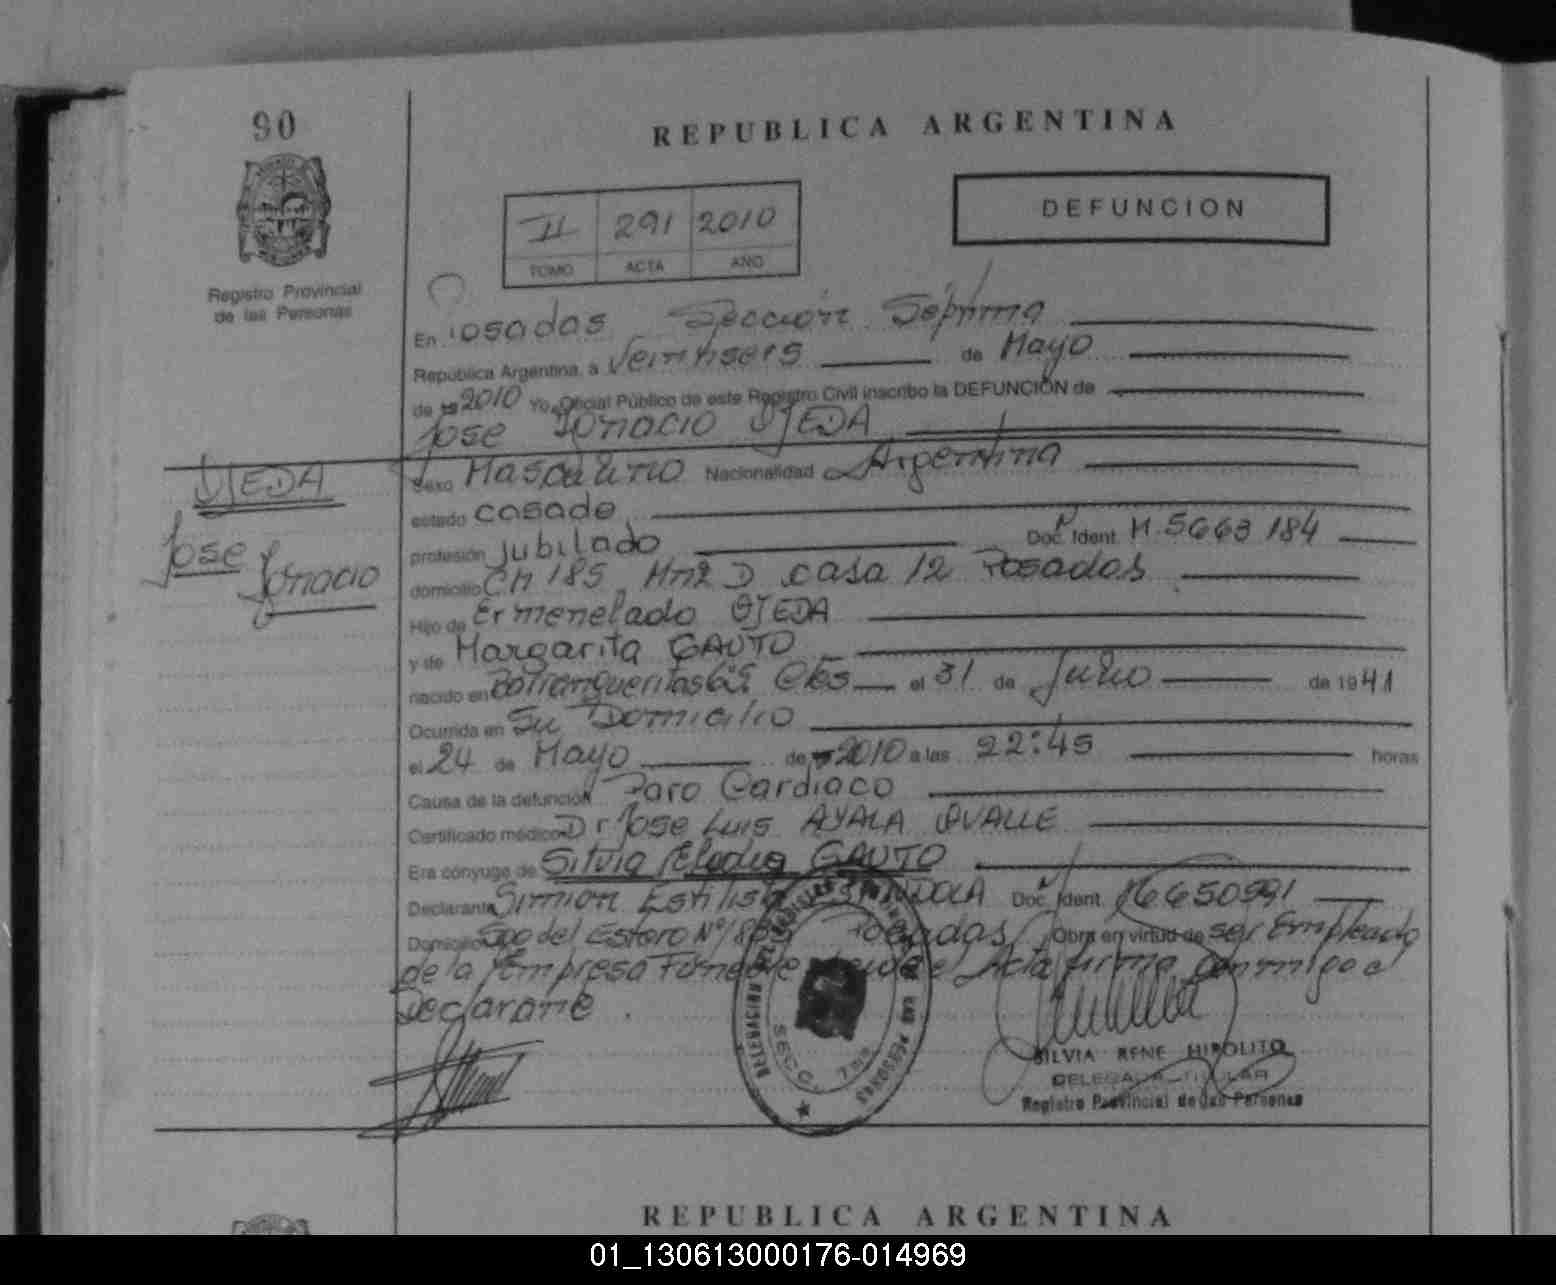 90
REPUBLICA ARGENTINA
DEFUNCION
II 291 2010
TOMO ACTA AÑO
Registro Provincial
de las Personas
En Posadas Sección Séptima
República Argentina, a Veintiseis de Mayo
de 2010 Yo, Oficial Público de este Registro Civil inscribo la DEFUNCIÓN de
Jose Ignacio OJEDA
OJEDA
Jose Ignacio
Sexo Masculino Nacionalidad Argentina
estado casado
profesión jubilado Doc. Ident. M. 5663184
domicilio CH 185 Mnz D casa 12 Posadas
Hijo de Ermenelado OJEDA
y de Margarita GAUTO
nacido en Barranqueritas Ctes el 31 de Julio de 1941
Ocurrida en Su Domicilio
el 24 de Mayo de 2010 a las 22:45 horas
Causa de la defunción Paro Cardiaco
Certificado médico Dr Jose Luis AYALA OVALLE
Era cónyuge de Silvia Eladia GAUTO
Declarante Simion Estilista Doc. Ident. 16650591
Domicilio Sgo del Estero Nº Posadas Obra en virtud de ser Empleado
de la Empresa Acta firma conmigo el
Declarante .
SECC. 7ma
SILVIA RENE HIPOLITO
DELEGADA TITULAR
Registro Provincial de las Personas
REPUBLICA ARGENTINA
01_130613000176-014969